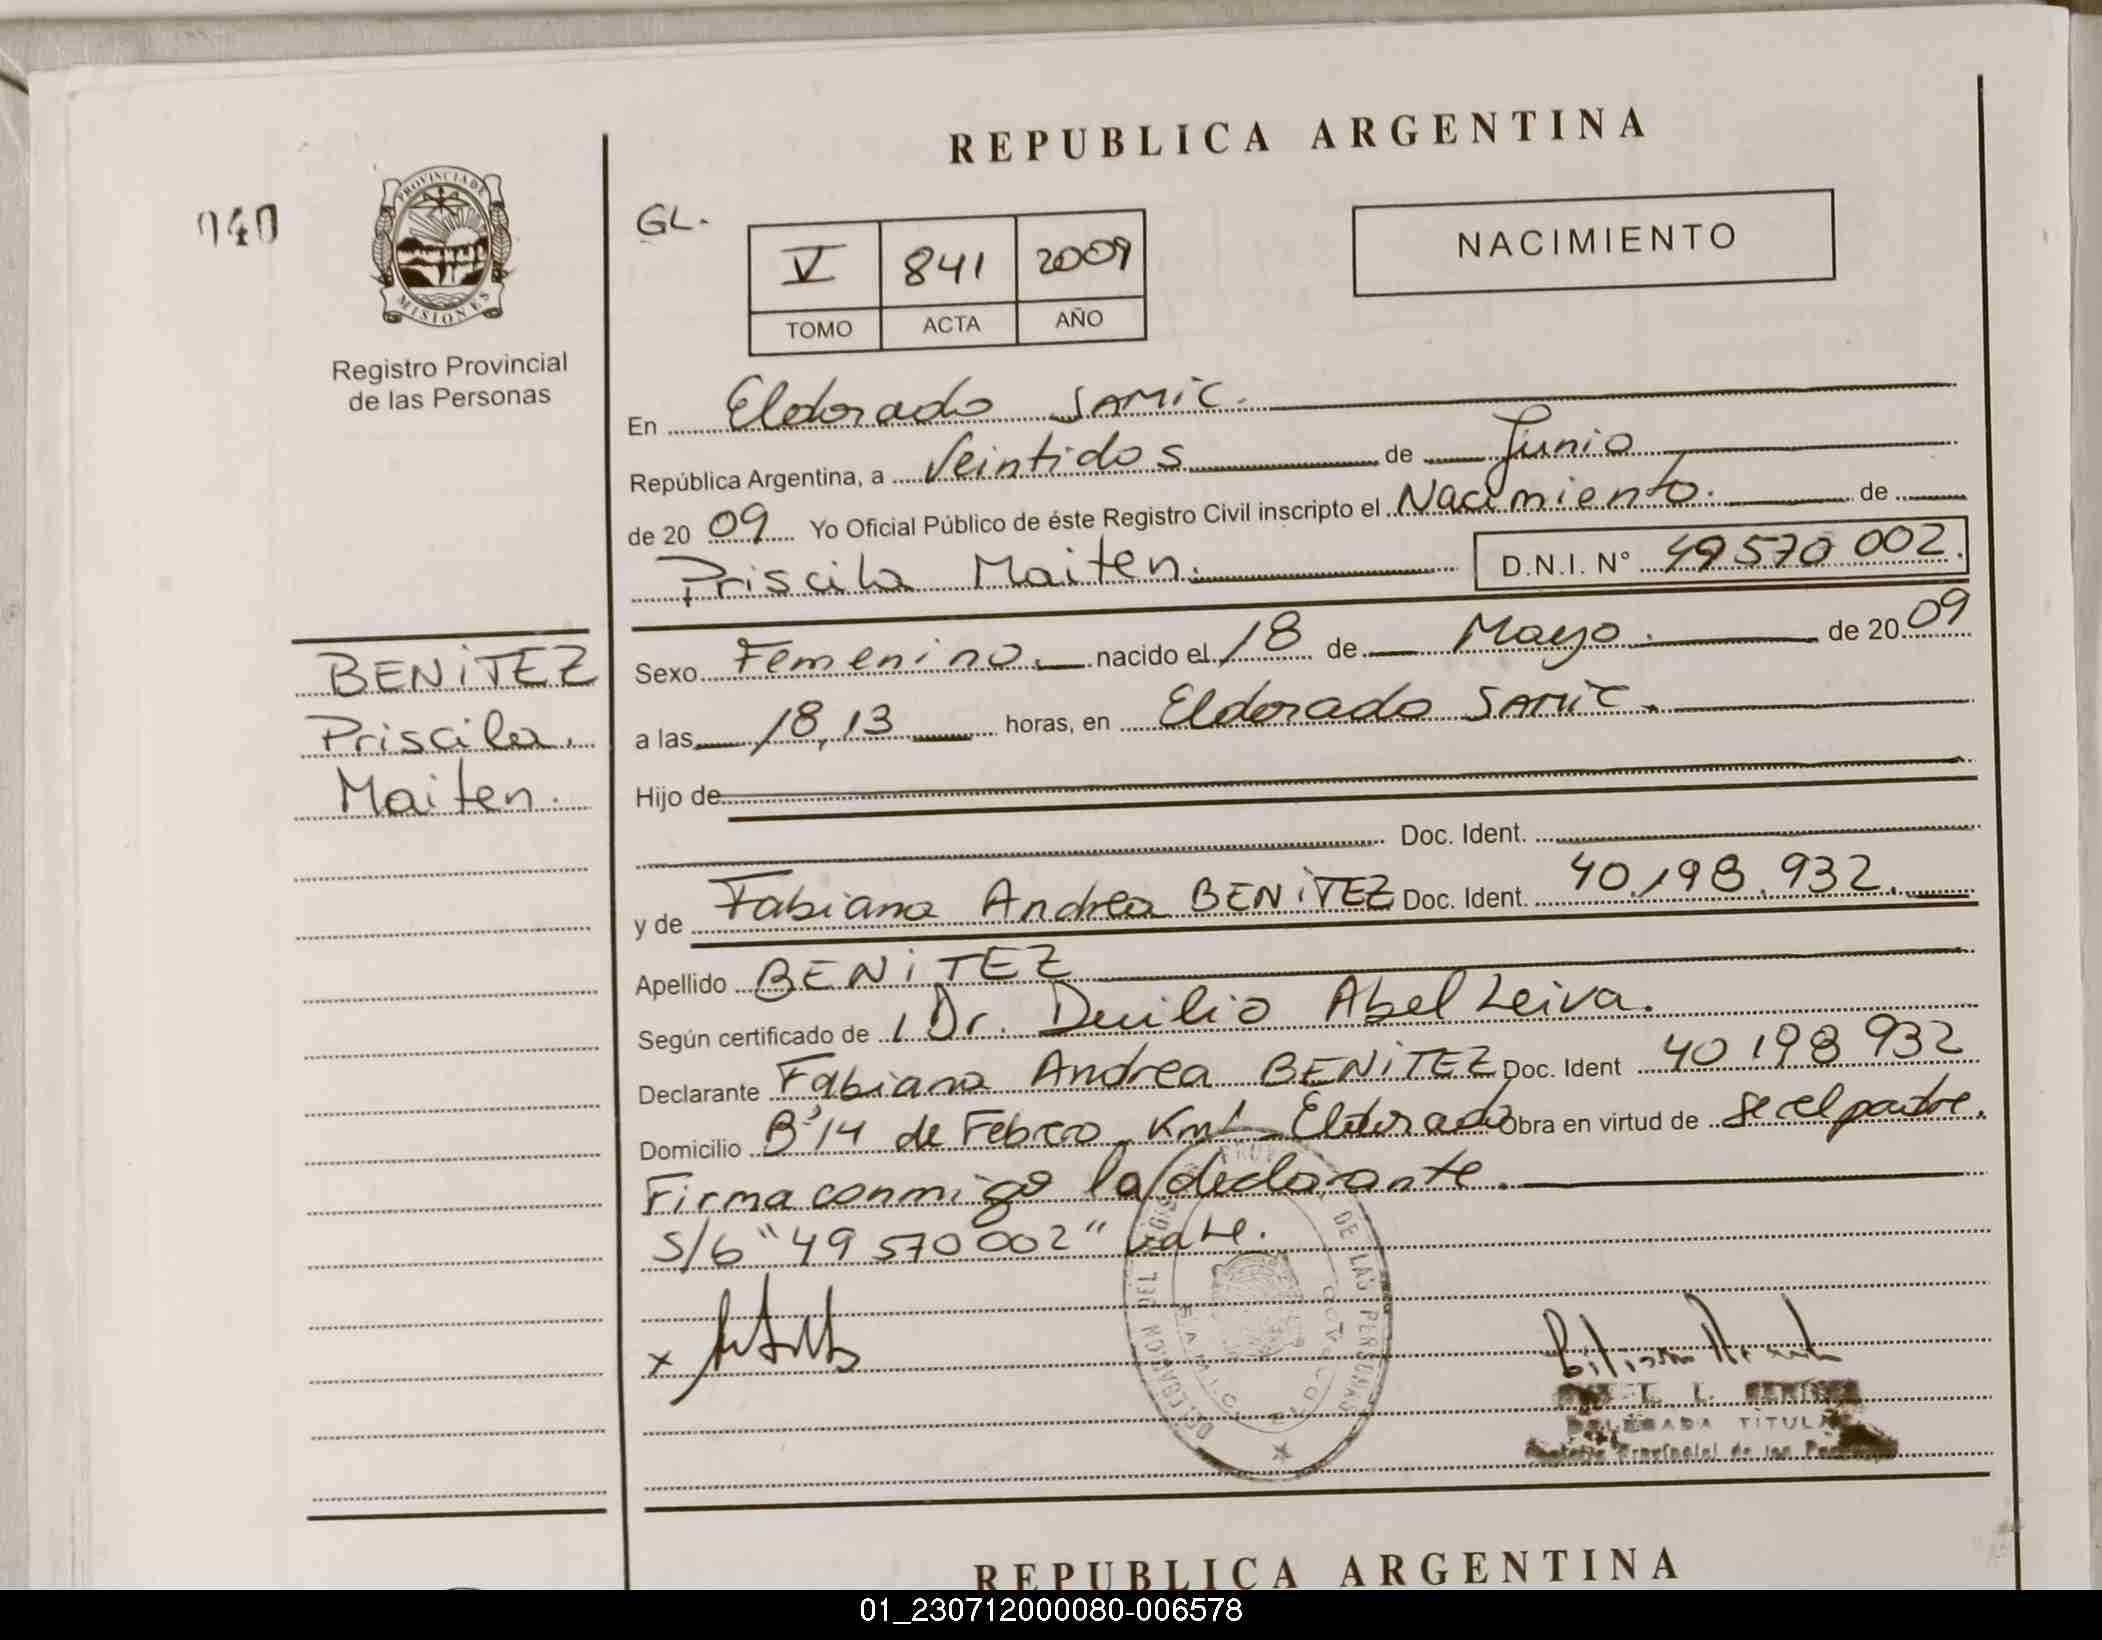 REPUBLICA ARGENTINA
040
PROVINCIA DE
MISIONES
Registro Provincial
de las Personas
GL.
V 841 2009
TOMO ACTA AÑO
NACIMIENTO
En Eldorado SAMIC.
República Argentina, a Veintidos de Junio
de 2009 Yo Oficial Público de éste Registro Civil inscripto el Nacimiento. de
Priscila Maiten. D.N.I. N° 49570 002.
BENITEZ
Priscila.
Maiten.
Sexo Femenino nacido el 18 de Mayo. de 2009
a las 18,13 horas, en Eldorado SAMIC.
Hijo de
Doc. Ident.
y de Fabiana Andrea BENITEZ Doc. Ident. 40.198.932.
Apellido BENITEZ
Según certificado de Dr. Duilio Abel Leiva.
Declarante Fabiana Andrea BENITEZ Doc. Ident 40 198 932
Domicilio B° 14 de Febrero Eldorado Obra en virtud de
Firma conmigo la declarante.
S/b "49 570 002" vale.
x
DELEGACION DEL DE LAS PERSONAS
S.A.M.I.C.
DELEGADA TITULAR
REPUBLICA ARGENTINA
01_230712000080-006578